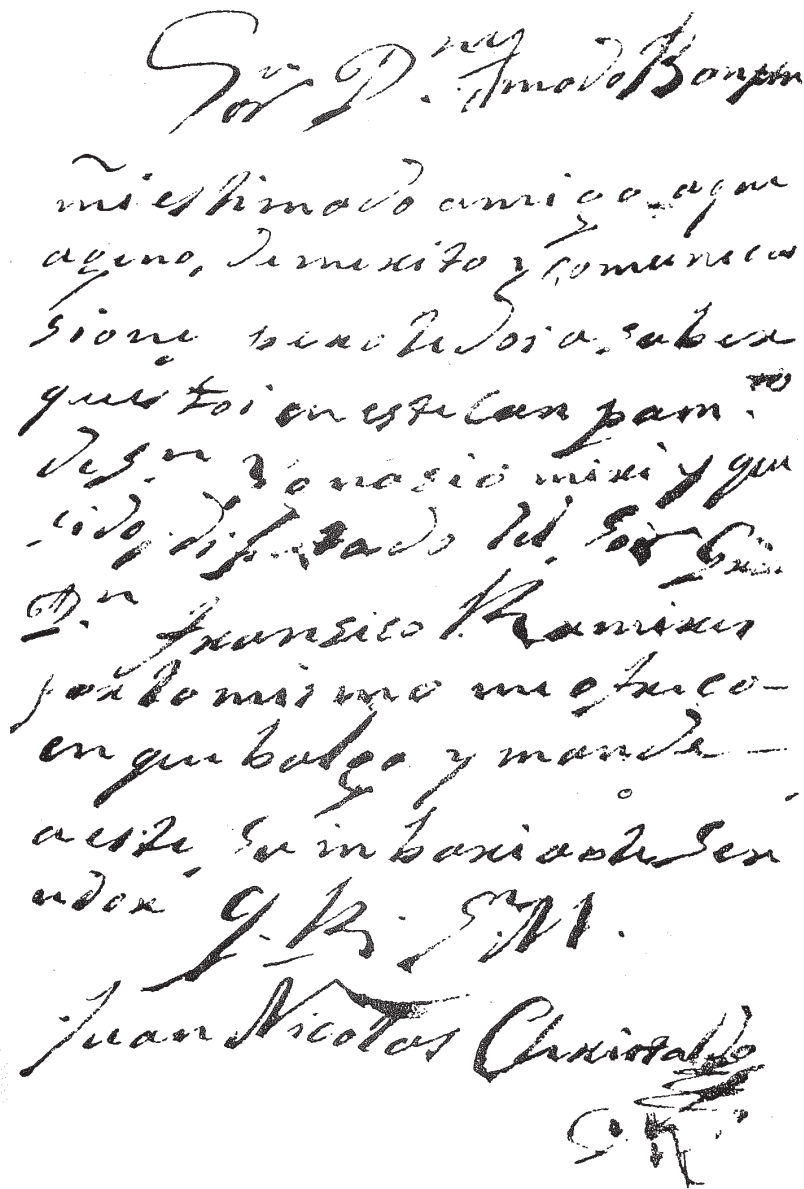 Sor Dn Amado Bonpn
mi estimado amigo aqui
ageno, de mexito y comunica
sione pero le dosia saber
que estoi en este Canpamto
de Sn Ygnasio mixi y que
sido diputado del Sor Gra
Dn Fransico Ramires
por lo mismo me ofrsco
en que balga y mande
a este, su inbariable Ser
udor Q. B. S. M.
Juan Nicolas Christaldo